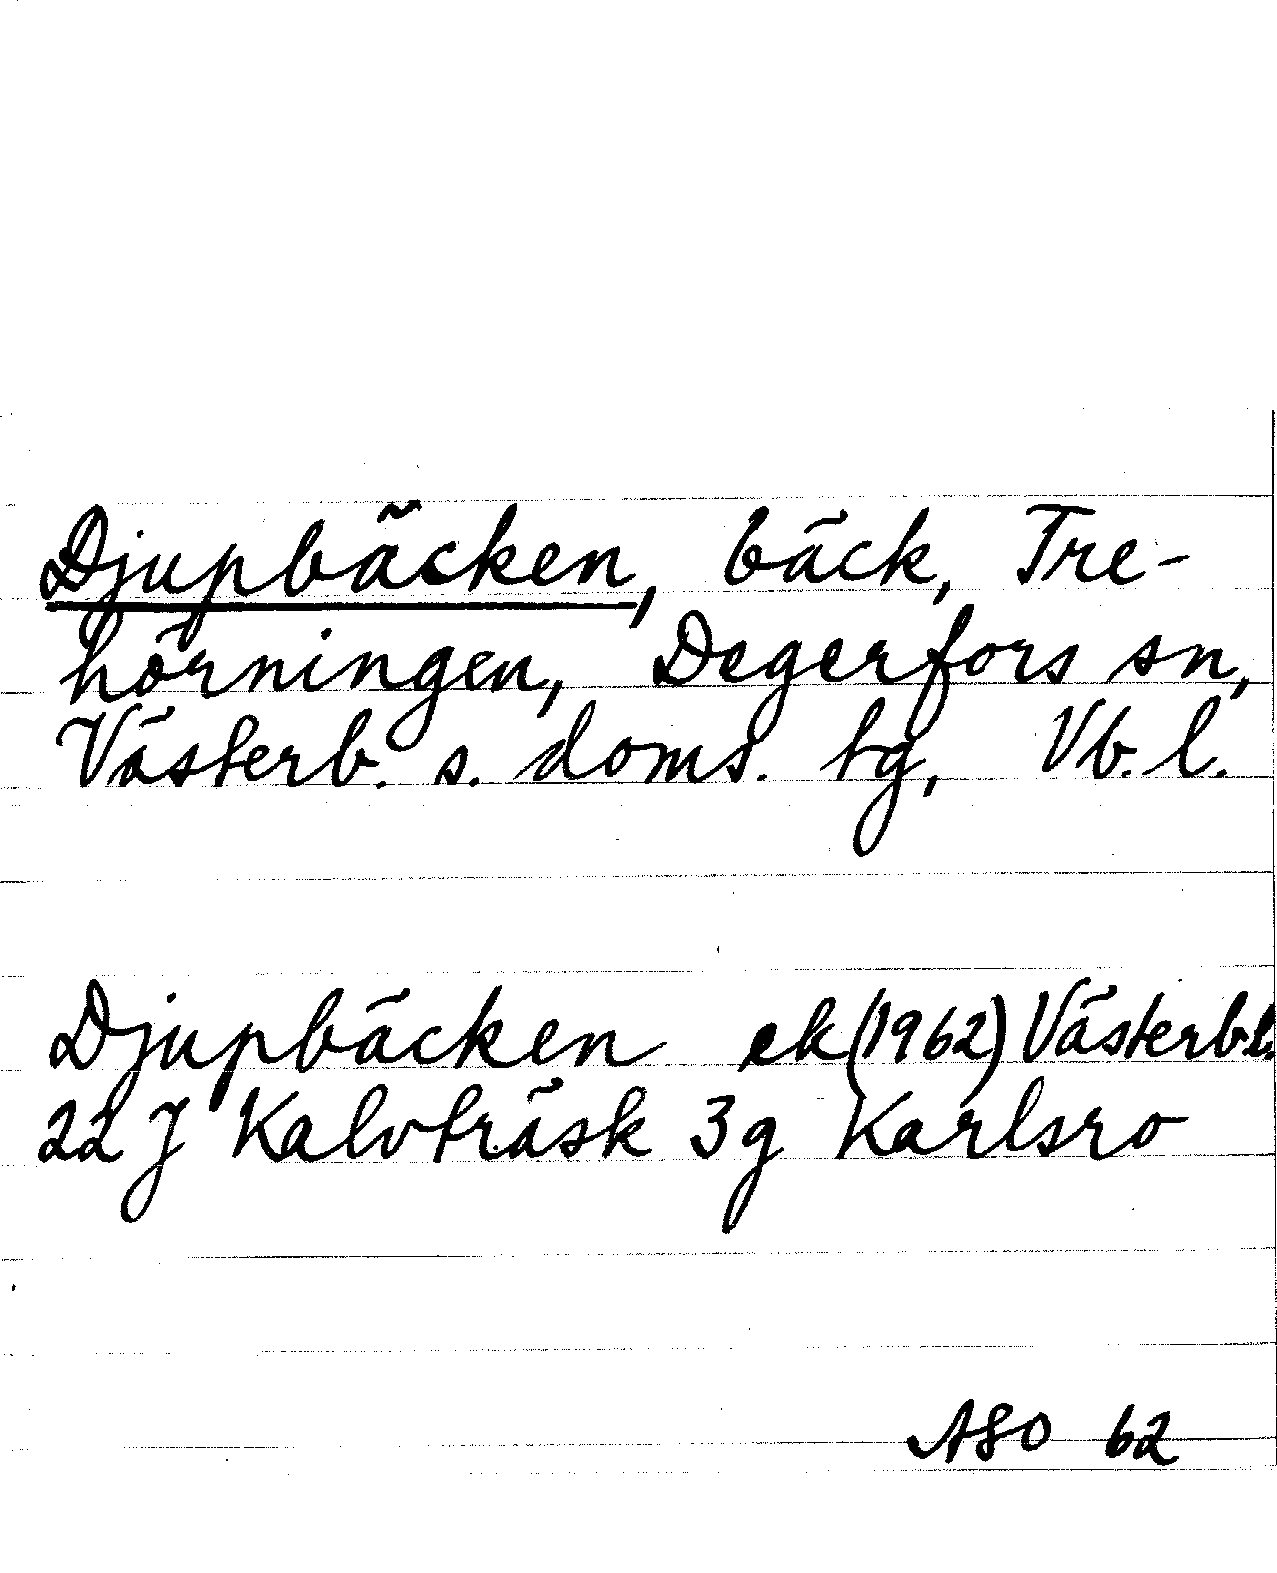 Djupbäcken, bäck, Tre-
hörningen, Degerfors sn,
Västerb. s. doms. tg, Vb. l.
Djupbäcken ek (1962) Västerb.l.
22 J Kalvträsk 3g Karlsro
ASO 62